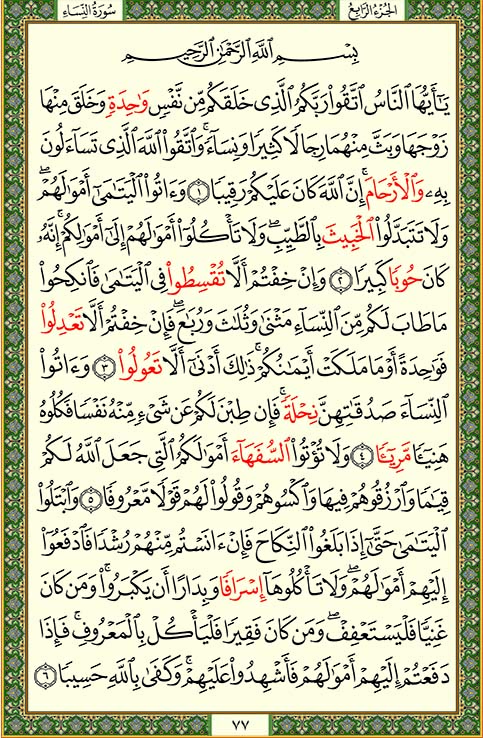 سُورَةُ النِّسَاءِ الجُزْءُ الرَّابِعُ
بِسْمِ ٱللَّهِ ٱلرَّحْمَٰنِ ٱلرَّحِيمِ
يَٰٓأَيُّهَا ٱلنَّاسُ ٱتَّقُوا۟ رَبَّكُمُ ٱلَّذِى خَلَقَكُم مِّن نَّفْسٍ وَٰحِدَةٍ وَخَلَقَ مِنْهَا
زَوْجَهَا وَبَثَّ مِنْهُمَا رِجَالًا كَثِيرًا وَنِسَآءً ۚ وَٱتَّقُوا۟ ٱللَّهَ ٱلَّذِى تَسَآءَلُونَ
بِهِۦ وَٱلْأَرْحَامَ ۚ إِنَّ ٱللَّهَ كَانَ عَلَيْكُمْ رَقِيبًا ١ وَءَاتُوا۟ ٱلْيَتَٰمَىٰٓ أَمْوَٰلَهُمْ ۖ
وَلَا تَتَبَدَّلُوا۟ ٱلْخَبِيثَ بِٱلطَّيِّبِ ۖ وَلَا تَأْكُلُوٓا۟ أَمْوَٰلَهُمْ إِلَىٰٓ أَمْوَٰلِكُمْ ۚ إِنَّهُۥ
كَانَ حُوبًا كَبِيرًا ٢ وَإِنْ خِفْتُمْ أَلَّا تُقْسِطُوا۟ فِى ٱلْيَتَٰمَىٰ فَٱنكِحُوا۟
مَا طَابَ لَكُم مِّنَ ٱلنِّسَآءِ مَثْنَىٰ وَثُلَٰثَ وَرُبَٰعَ ۖ فَإِنْ خِفْتُمْ أَلَّا تَعْدِلُوا۟
فَوَٰحِدَةً أَوْ مَا مَلَكَتْ أَيْمَٰنُكُمْ ۚ ذَٰلِكَ أَدْنَىٰٓ أَلَّا تَعُولُوا۟ ٣ وَءَاتُوا۟
ٱلنِّسَآءَ صَدُقَٰتِهِنَّ نِحْلَةً ۚ فَإِن طِبْنَ لَكُمْ عَن شَىْءٍ مِّنْهُ نَفْسًا فَكُلُوهُ
هَنِيٓـًٔا مَّرِيٓـًٔا ٤ وَلَا تُؤْتُوا۟ ٱلسُّفَهَآءَ أَمْوَٰلَكُمُ ٱلَّتِى جَعَلَ ٱللَّهُ لَكُمْ
قِيَٰمًا وَٱرْزُقُوهُمْ فِيهَا وَٱكْسُوهُمْ وَقُولُوا۟ لَهُمْ قَوْلًا مَّعْرُوفًا ٥ وَٱبْتَلُوا۟
ٱلْيَتَٰمَىٰ حَتَّىٰٓ إِذَا بَلَغُوا۟ ٱلنِّكَاحَ فَإِنْ ءَانَسْتُم مِّنْهُمْ رُشْدًا فَٱدْفَعُوٓا۟
إِلَيْهِمْ أَمْوَٰلَهُمْ ۖ وَلَا تَأْكُلُوهَآ إِسْرَافًا وَبِدَارًا أَن يَكْبَرُوا۟ ۚ وَمَن كَانَ
غَنِيًّا فَلْيَسْتَعْفِفْ ۖ وَمَن كَانَ فَقِيرًا فَلْيَأْكُلْ بِٱلْمَعْرُوفِ ۚ فَإِذَا
دَفَعْتُمْ إِلَيْهِمْ أَمْوَٰلَهُمْ فَأَشْهِدُوا۟ عَلَيْهِمْ ۚ وَكَفَىٰ بِٱللَّهِ حَسِيبًا ٦
٧٧